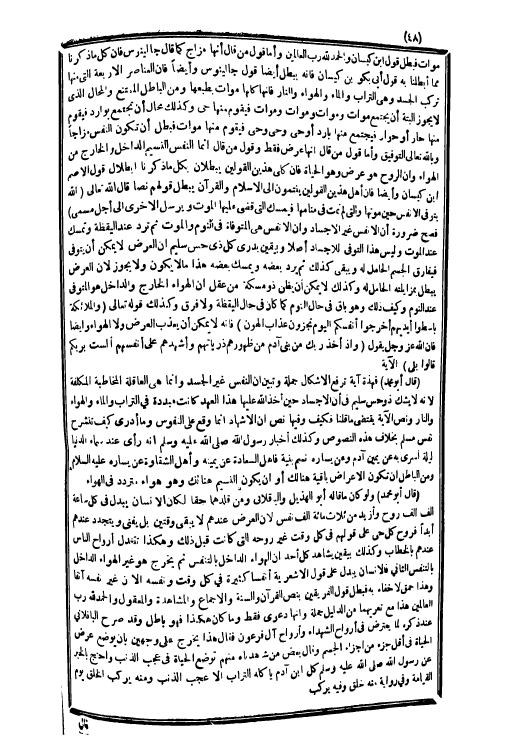 (٤٨)
موات فبطل قول ابن كيسان والحمد لله رب العالمين وأما قول من قال أنها مزاج كما قال جالينوس فان كل ما ذكرنا
مما أبطلنا به قول أبى بكر بن كيسان فانه يبطل أيضا قول جالينوس وأيضاً فان العناصر الاربعة التى منها
تركب الجسد وهى التراب والماء والهواء والنار فانها كلها موات بطبعها ومن الباطل الممتنع والمحال الذى
لا يجوز البتة أن يجتمع موات وموات وموات وموات فيقوم منها حى وكذلك محال أن يجتمع بوارد فيقوم
منها حار أو حوار فيجتمع منها بارد أو حى وحى وحى فيقوم منها موات فبطل أن تكون النفس مزاجاً
وبالله تعالى التوفيق وأما قول من قال انها عرض فقط وقول من قال انما النفس النسيم الداخل والخارج من
الهواء وان الروح هو عرض وهو الحياة فان كلى هذين القولين يبطلان بكل ما ذكرنا ابطلال قول الاصم
ابن كيسان وأيضا فان أهل هذين القولين ينتمون الى الاسلام والقرآن يبطل قولهم نصا قال الله تعالى ( الله
يتوفى الانفس حين موتها والتى لم تمت فى منامها فيمسك التى قضى عليها الموت ويرسل الاخرى الى أجل مسمى )
فصح ضرورة أن الانفس غير الاجساد وان الانفس هى المتوفاة فى النوم والموت ثم ترد عند اليقظة وتمسك
عند الموت وليس هذا التوفى للاجساد أصلا وبيقين يدرى كل ذى حس سليم ان العرض لا يمكن أن يتوفى
فيفارق الجسم الحامل له ويبقى كذلك ثم يرد بعضه ويمسك بعضه هذا ما لا يكون ولا يجوز لان العرض
يبطل بمزايلته الحامل له وكذلك لا يمكن أن يظن ذو مسكة من عقل ان الهواء الخارج والداخل هو المتوفى
عند النوم وكيف ذلك وهو باق فى حال النوم كما كان فى حال اليقظة ولا فرق وكذلك قوله تعالى ( والملائكة
باسطوا أيديهم أخرجوا أنفسكم اليوم تجزون عذاب الهون ) فانه لا يمكن أن يعذب العرض ولا الهواء وايضا
فان الله عز وجل يقول ( واذ أخذ ربك من بنى آدم من ظهورهم ذرياتهم وأشهدهم على أنفسهم ألست بربكم
قالوا بلى ) الآية
(قال أبو محمد) فهذة آية ترفع الاشكال جملة وتبين ان النفس غير الجسد وانما هى العاقلة المخاطبة المكلفة
لانه لا يشك ذو حس سليم فى أن الاجساد حين أخذ الله عليها هذا العهد كانت مبددة فى التراب والماء والهواء
والنار ونص الآية يقتضى ما قلنا فكيف وفيها نص ان الاشهاد انما وقع على النفوس وما أدرى كيف تنشرح
نفس مسلم بخلاف هذه النصوص وكذلك أخبار رسول الله صلى الله عليه وسلم انه رأى عند سماء الدنيا
ليلة أسرى به عن يمين آدم وعن يساره نسم بنيه فاهل السعادة عن يمينه وأهل الشقاوة عن يساره عليه السلام
ومن الباطل ان تكون الاعراض باقية هنالك أو ان يكون النسيم هنالك وهو هواء متردد فى الهواء
(قال أبو محمد) ولو كان ما قاله أبو الهذيل والباقلانى ومن قلدهما حقا لكان الانسان يبدل فى كل ساعة
الف الف روح وأزيد من ثلاثمائة الف نفس لان العرض عندهم لا يبقى وقتين بل يفنى ويتجدد عندهم
أبداً فروح كل حى على قولهم فى كل وقت غير روحه التى كانت قبل ذلك وهكذا تتبدل أرواح الناس
عندهم بالخطاب وكذلك بيقين يشاهد كل أحد ان الهواء الداخل بالتنفس ثم يخرج هو غير الهواء الداخل
بالتنفس الثانى فالانسان يبدل على قول الاشعرية أنفسا كثيرة فى كل وقت ونفسه الآن غير نفسه آنفا
وهذا حمق لا خفاء به فبطل قول الفريقين بنص القرآن والسنة والاجماع والمشاهدة والمعقول والحمد لله رب
العالمين هذا مع تعريهما من الدليل جملة وانها دعوى فقط وما كان هكذا فهو باطل وقد صرح الباقلانى
عند ذكره لما يعترض فى أرواح الشهداء وأرواح آل فرعون فقال هذا يخرج على وجهين بان يوضع عرض
الحياة فى أقل جزء من أجزاء الجسم وقال بعض من شاهدناه منهم توضع الحياة فى عجب الذنب واحتج بالخبر
عن رسول الله صلى الله عليه وسلم كل ابن آدم يأكله التراب الا عجب الذنب ومنه يركب الخلق يوم
القيامة وفى رواية منه خلق وفيه يركب